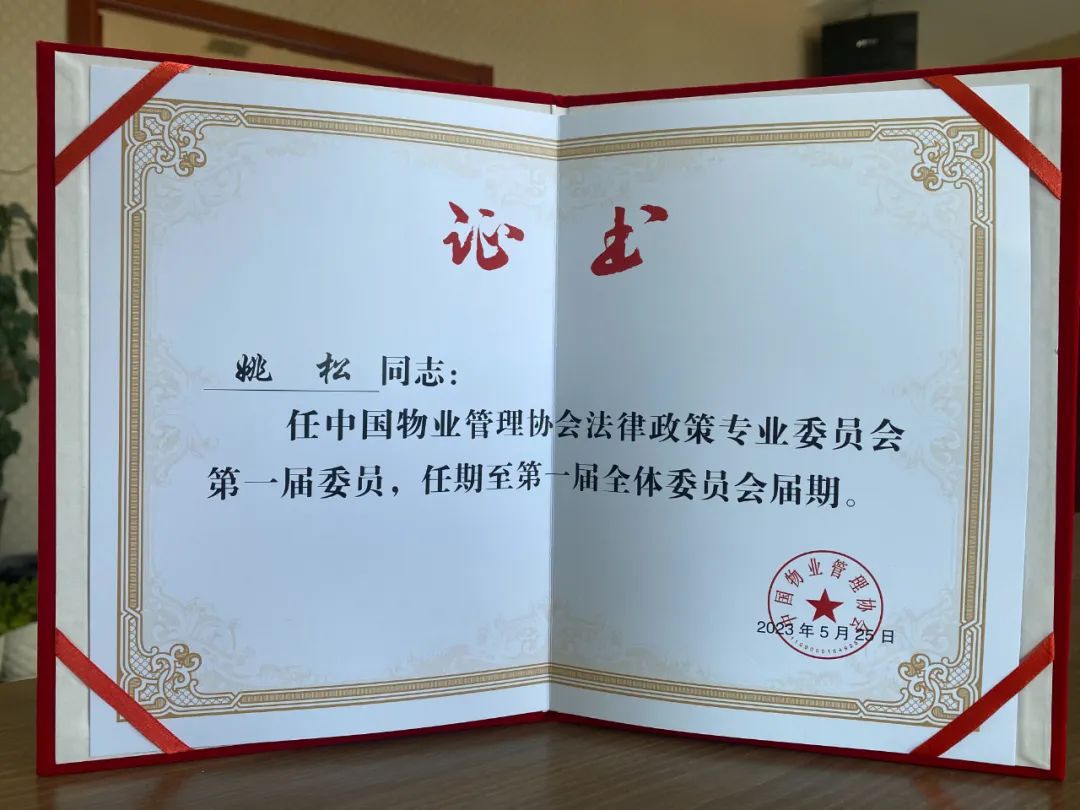 证 书
姚 松 同志：
任中国物业管理协会法律政策专业委员会
第一届委员，任期至第一届全体委员会届期。
中国物业管理协会
2023 年 5 月 25 日